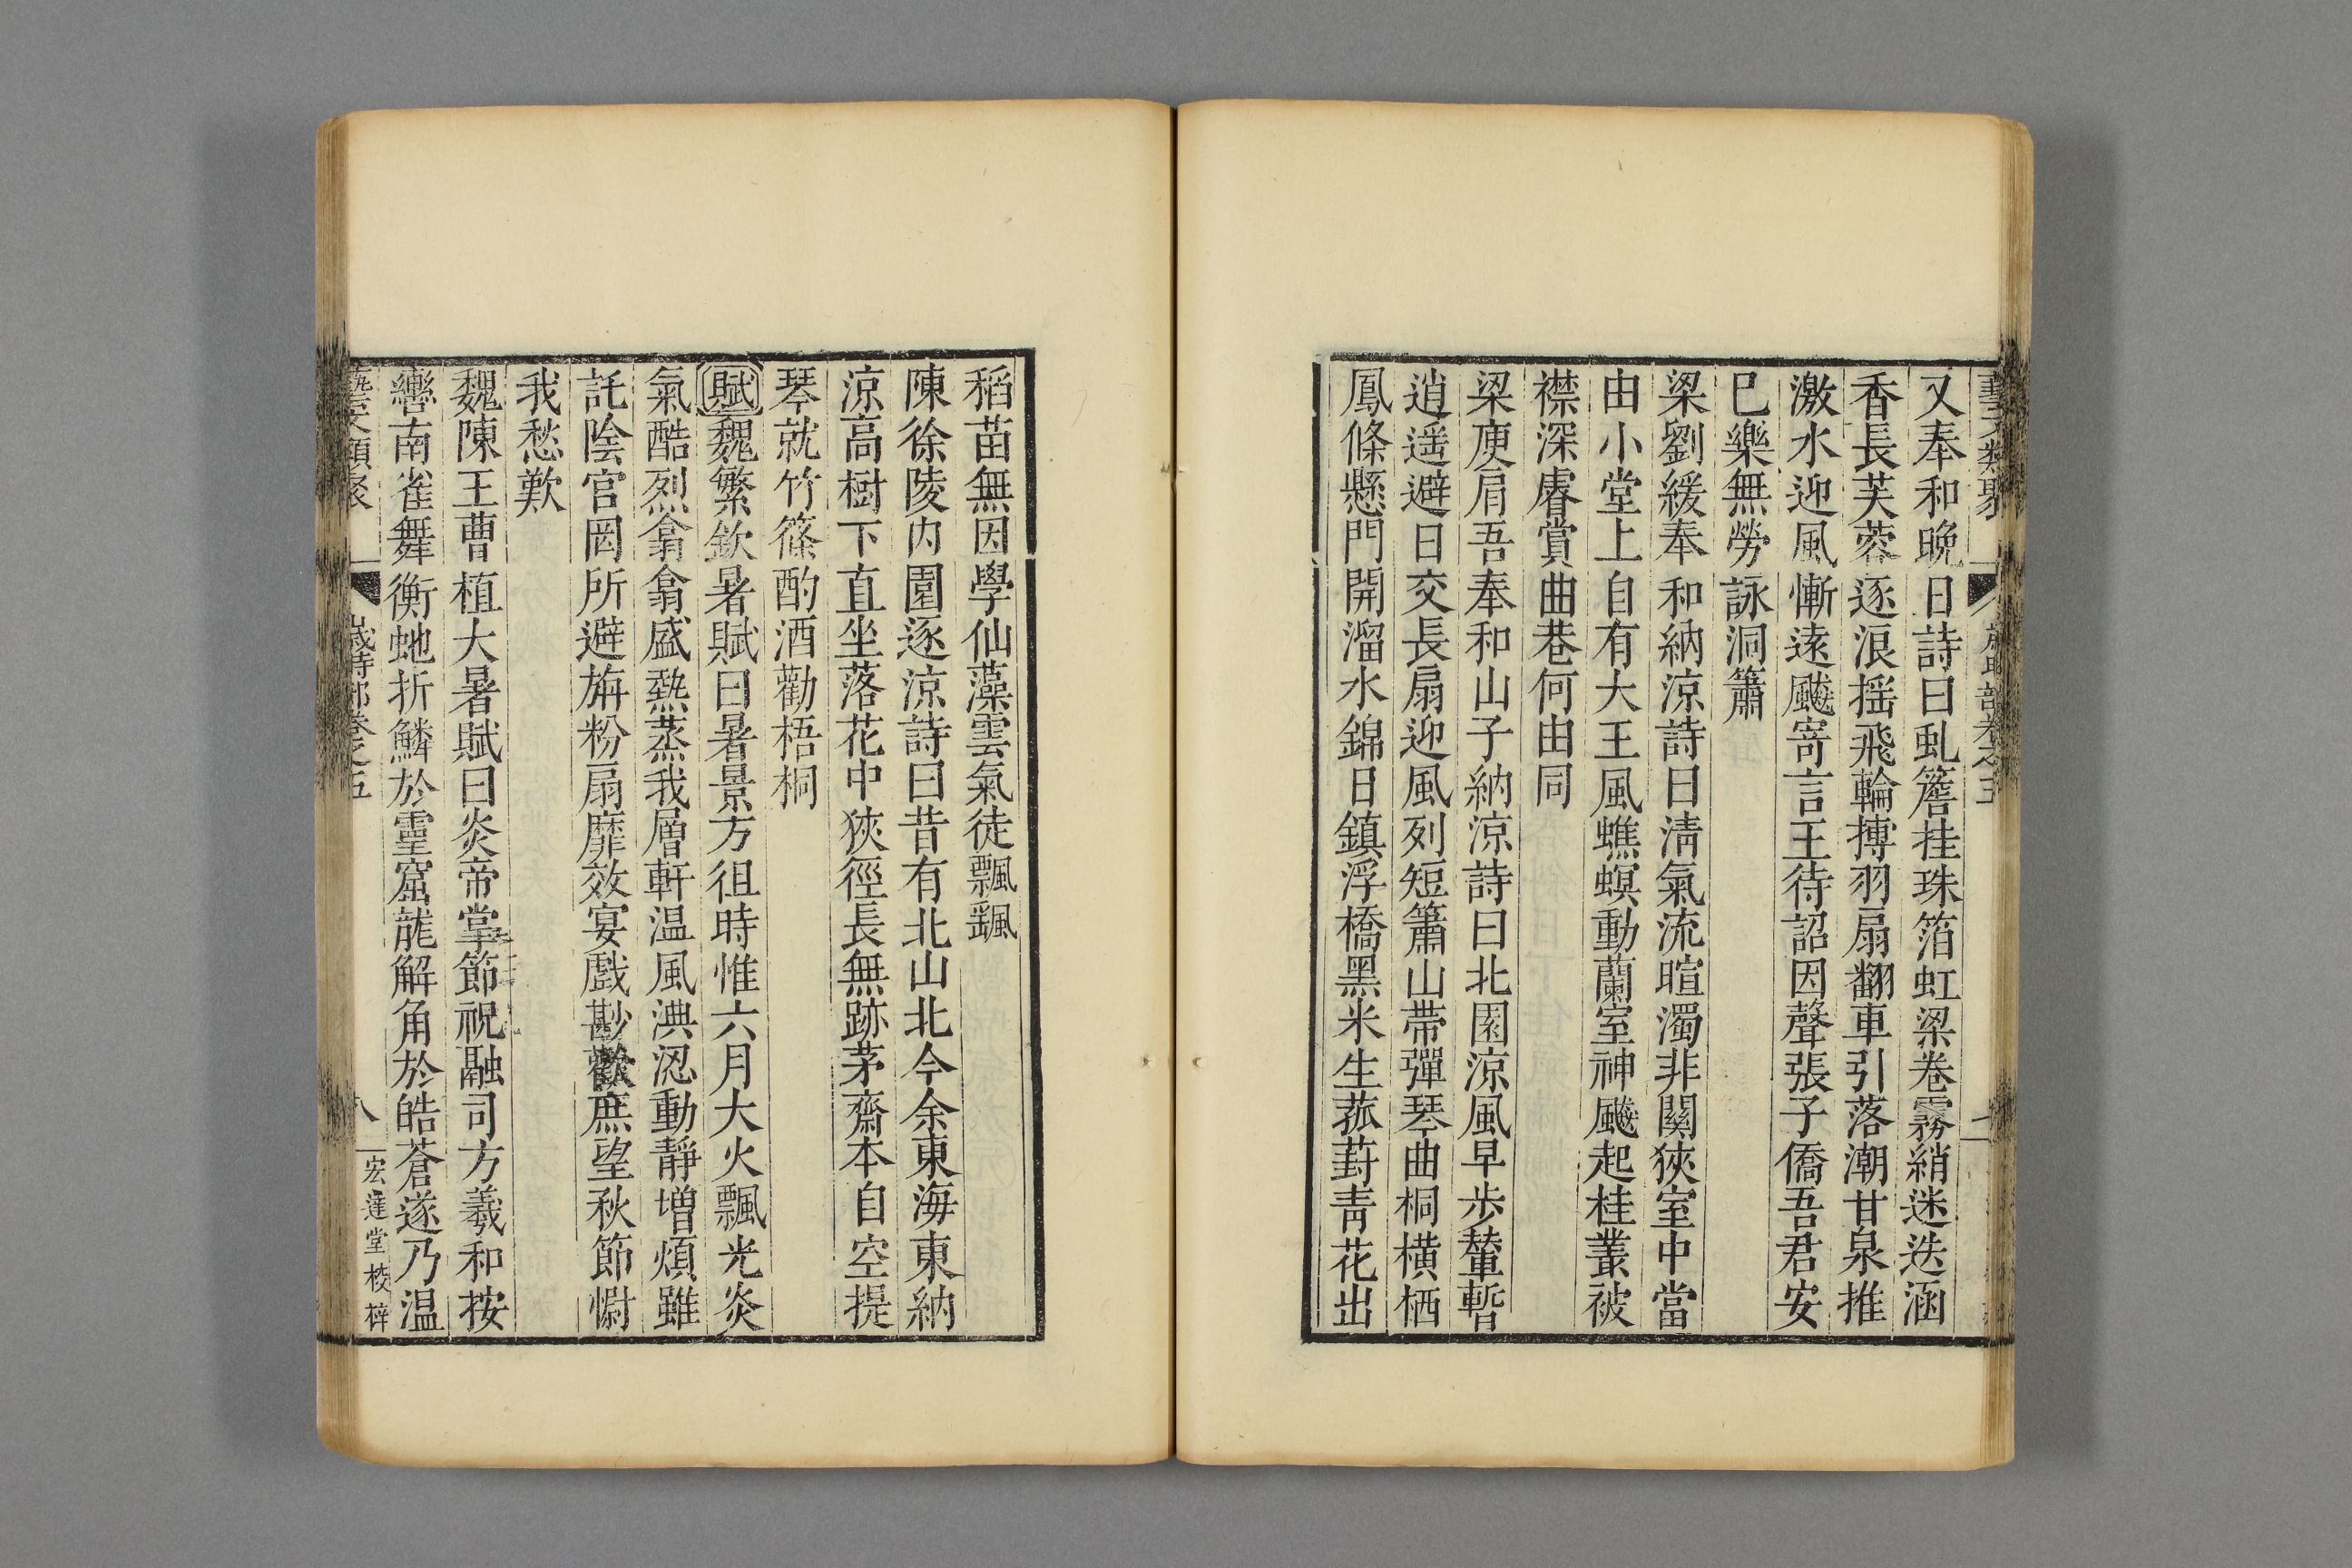 藝文類聚 歲時部卷之五
又奉和晚日詩曰虬簷挂珠箔虹梁卷霧綃迷迭涵
香長芙蓉逐浪揺飛輪搏羽扇翻車引落潮甘泉推
激水迎風慚遠颸寄言王待詔因聲張子僑吾君安
巳樂無勞詠洞簫
梁劉緩奉和納涼詩曰清氣流暄濁非關狹室中當
由小堂上自有大王風蟭螟動蘭室神颸起桂叢被
襟深睿賞曲巷何由同
梁庾肩吾奉和山子納涼詩曰北園涼風早步輦暫
逍遥避日交長扇迎風列短簫山帶彈琴曲桐横栖
鳳條懸門開溜水錦日鎮浮橋黑米生菰葑青花出
稻苗無因學仙藻雲氣徒飄颻
陳徐陵内園逐涼詩曰昔有北山北今余東海東納
涼高樹下直坐落花中狹徑長無跡茅齋本自空提
琴就竹篠酌酒勸梧桐
賦魏繁欽暑賦曰暑景方徂時惟六月大火飄光炎
氣酷烈翕翕盛熱蒸我層軒温風淟涊動靜增煩雖
託陰宫罔所避旃粉扇靡效宴戲尠歡庶望秋節慰
我愁歎
魏陳王曹植大暑賦曰炎帝掌節祝融司方羲和按
轡南雀舞衡虵折鱗於靈窟龍解角於皓蒼遂乃温
藝文類聚 歲時部卷之五 八 宏達堂校梓